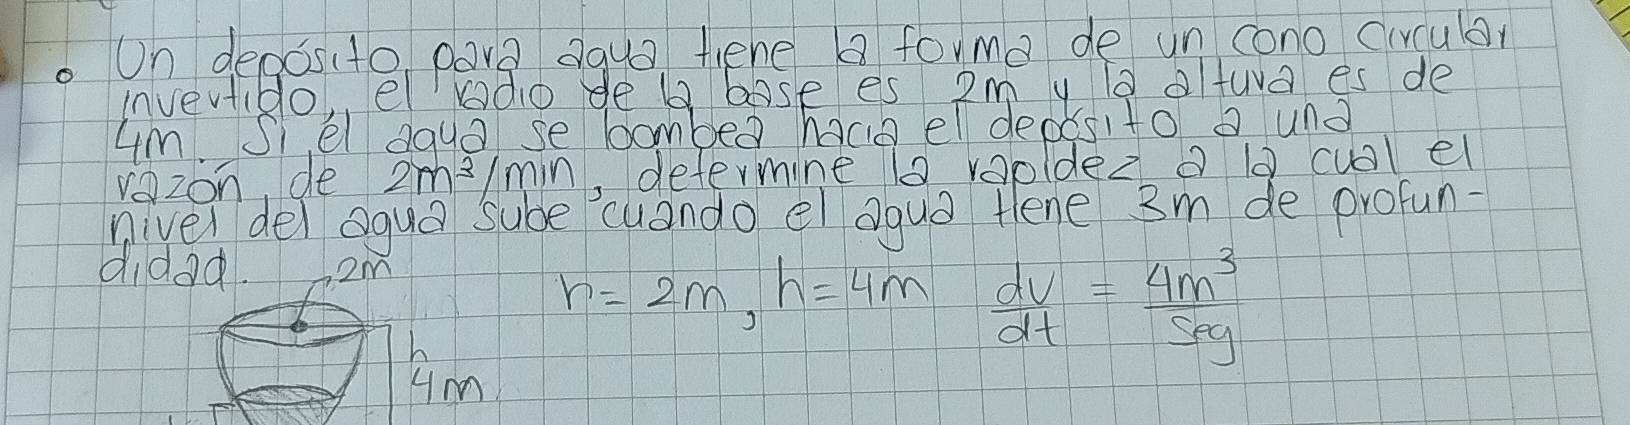 Un depósito para agua tiene la forma de un cono circular
invertido, el radio de la base es 2m y la altura es de
4m. Si él agua se bombea hacia el depósito a una
razón de 2m³/min, determine la rapidez a la cual el
nivel del agua sube cuando el agua tiene 3m de profun-
didad.
2m
r = 2m, h = 4m dv/dt = 4m³/seg
h
4m